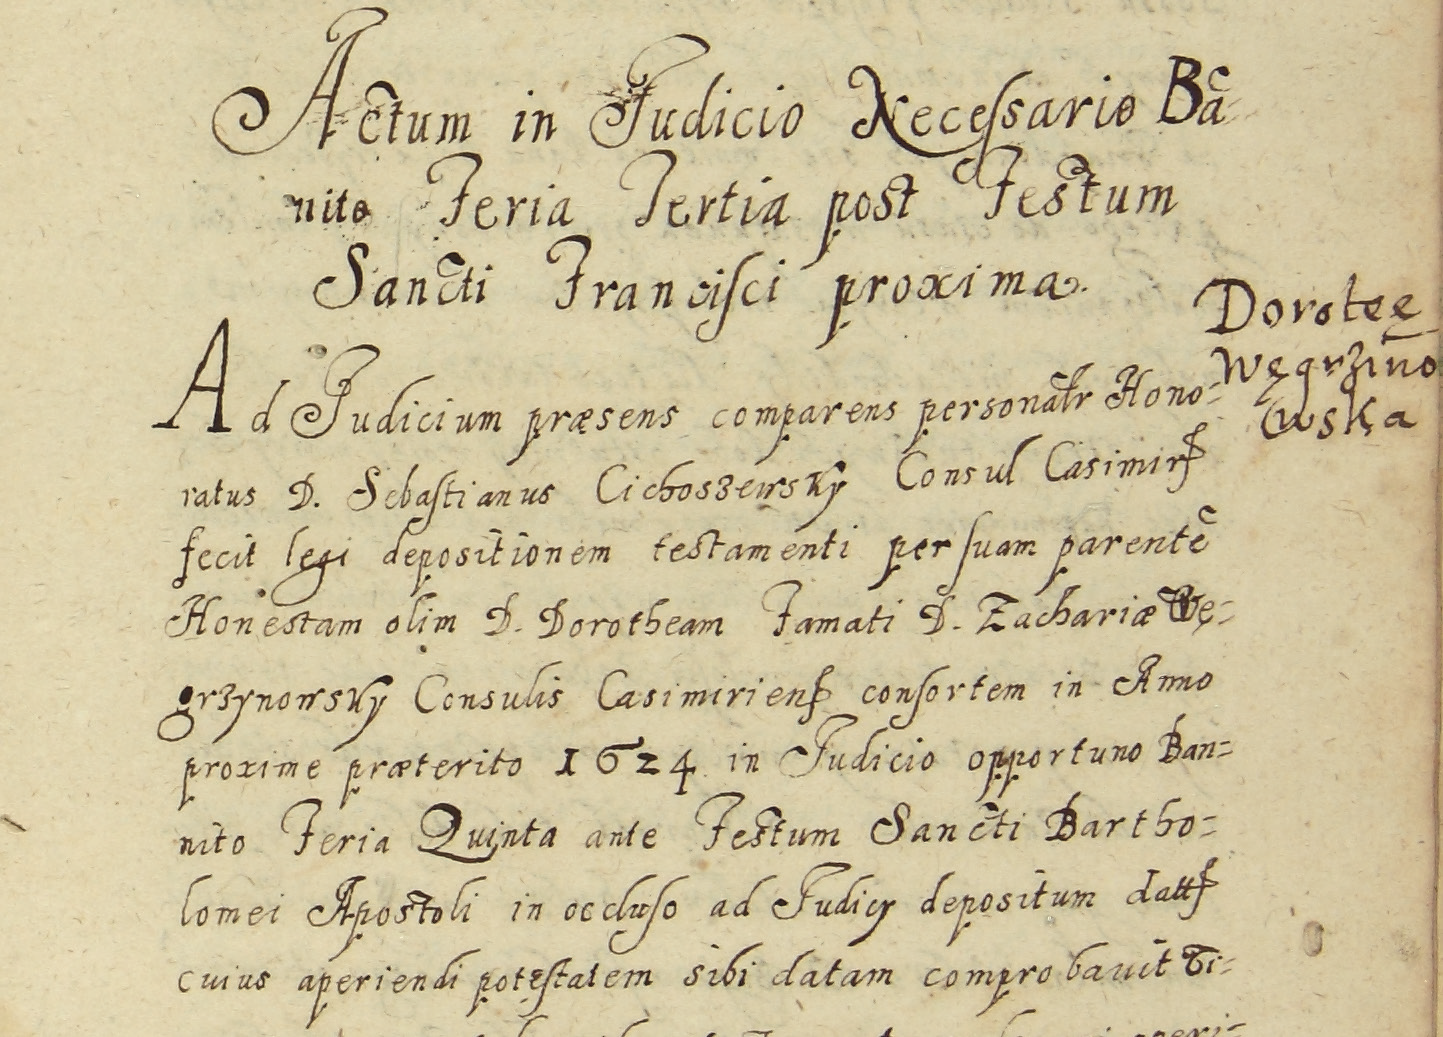 Actum in Judicio Necessario Bā-
nito Feria Tertia post Festum
Sancti Francisci proxima.
Doroteę
Węgrzĩno
wska
Ad Judicium præsens comparens personałr Hono-
ratus D. Sebastianus Cichoszewsky Consul Casimirß
fecit legi depositionem testamenti per suam parentē
Honestam olim D. Dorotheam Famati D. Zachariæ Wę-
grzynowsky Consulis Casimirienß consortem in Anno
proxime præterito 1624 in Judicio opportuno Ban-
nito Feria Quinta ante Festum Sancti Bartho-
lomei Apostoli in occluso ad Judicÿ depositum dattß
cuius aperiendi potestatem sibi datam comprobauit Ti-